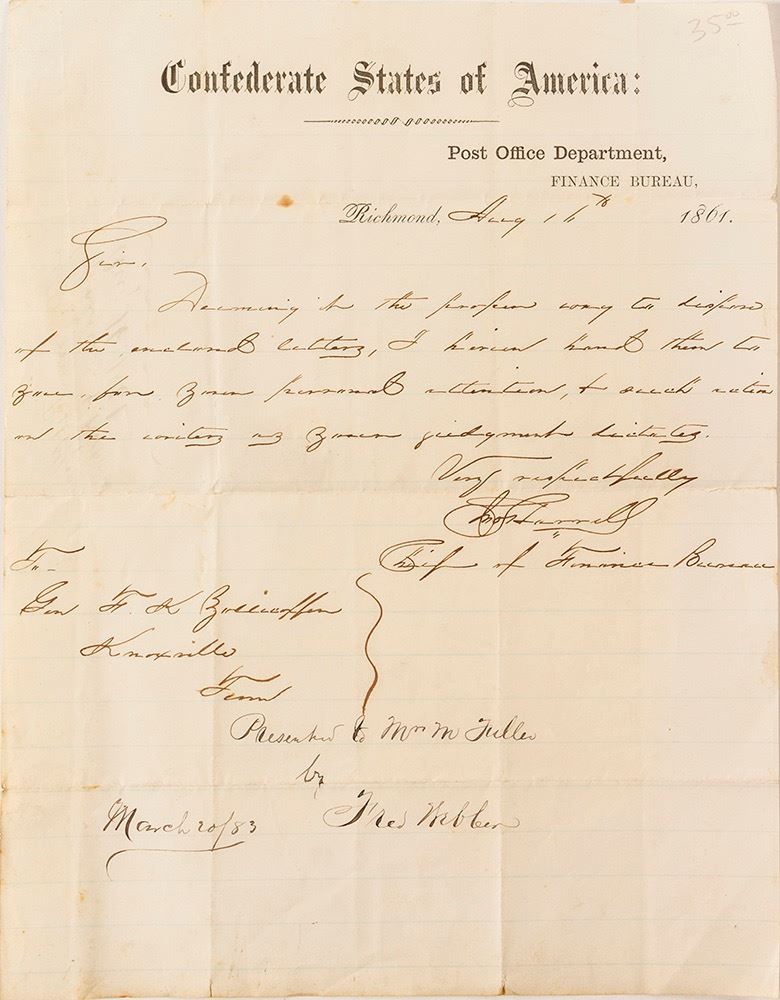 35.00
Confederate States of America:
Post Office Department,
FINANCE BUREAU,
Richmond, Aug 16th 1861.
Sir,
Deeming it the proper way to dispose
of the enclosed letters, I herein hand them to
you, for your personal attention, & such action
on the writers as your judgment dictates.
Very respectfully
Harrell
Chief of Finance Bureau
To
Gen F. K Zollicoffer
Knoxville
Tenn
Presented to Mrs M Fuller
by
March 20/83 Fred Webber